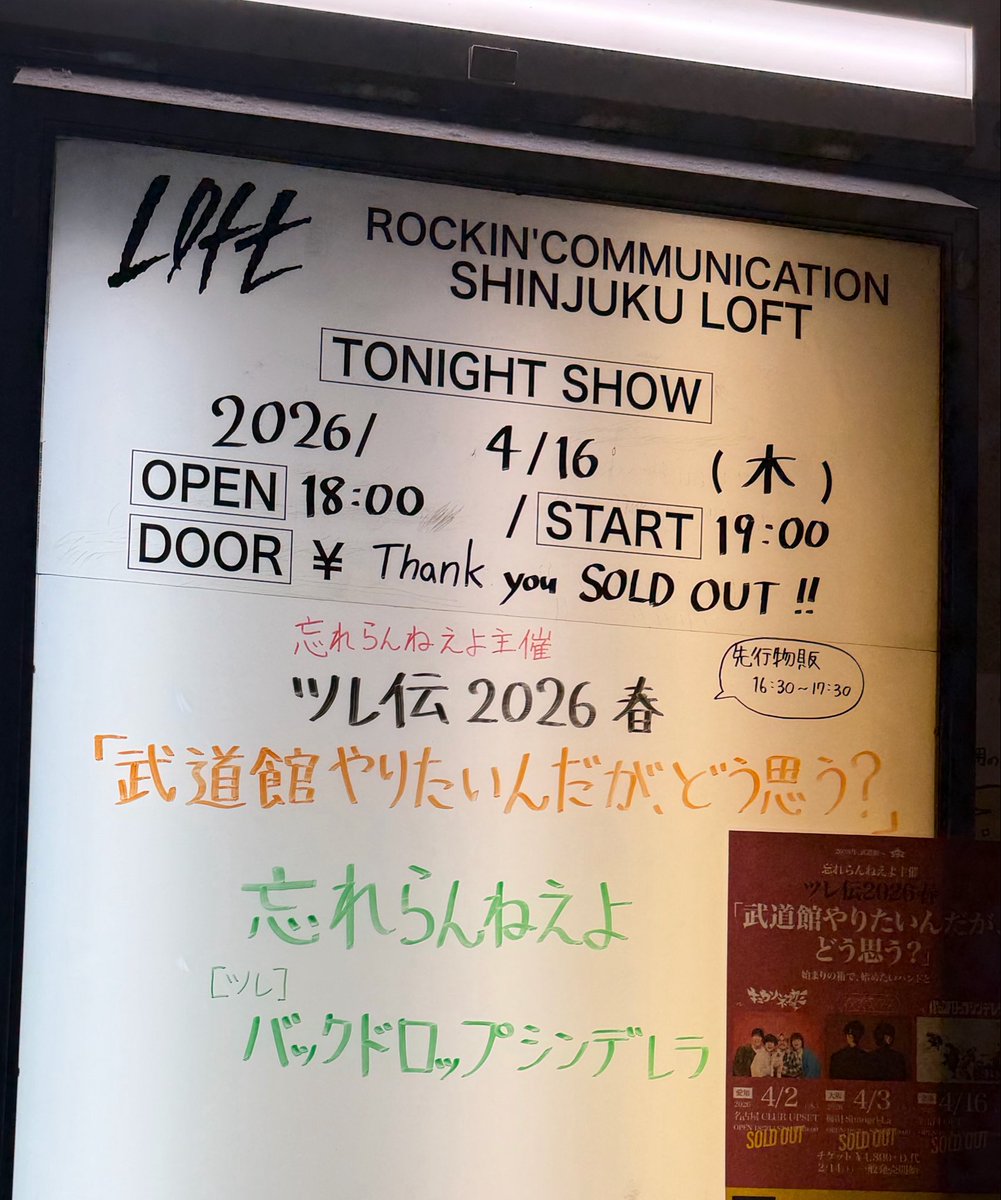 Loft
ROCKIN'COMMUNICATION
SHINJUKU LOFT
TONIGHT SHOW
2026/ 4/16 (木)
OPEN 18:00 / START 19:00
DOOR ¥ Thank you SOLD OUT !!
忘れらんねえよ主催
先行物販
16:30~17:30
ツレ伝 2026 春
「武道館やりたいんだが、どう思う?」
忘れらんねえよ
[ツレ]
バックドロップシンデレラ
忘れらんねえよ主催
ツレ伝2026春
「武道館やりたいんだが
どう思う?」
4/2
4/3
4/16
名古屋 CLUB UPSET
SOLD OUT
SOLD OUT
SOLD OUT
チケット ¥4,800+D代